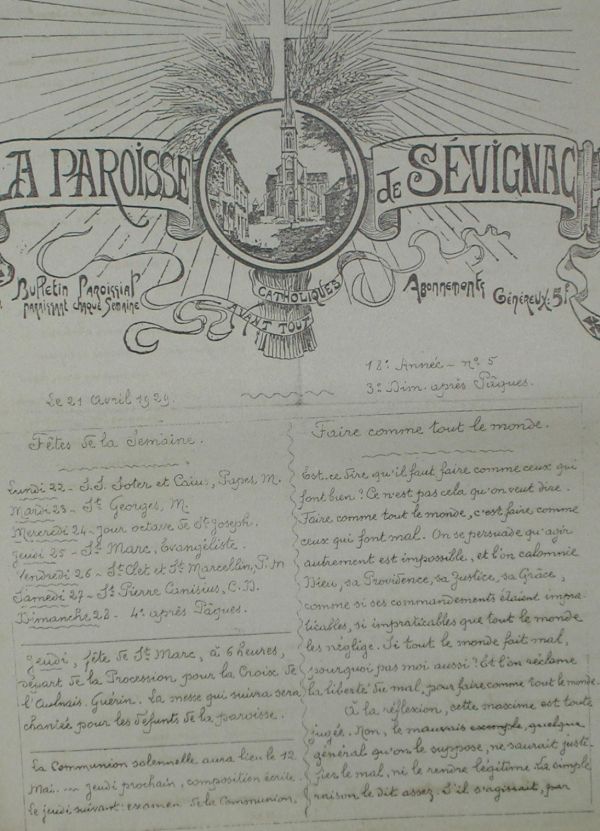 LA PAROISSE de SÉVIGNAC
Bulletin Paroissial
paraissant chaque Semaine
CATHOLIQUES
AVANT TOUT
Abonnements
Généreux: 5f
18e Année - no 5
Le 21 Avril 1929.
3e Dim. après Pâques.
Fêtes de la Semaine.
Lundi 22 - S.S. Soter et Caius, Papes, M.
Mardi 23 - St Georges, M.
Mercredi 24 - Jour octave de St Joseph.
Jeudi 25 - St Marc, Evangéliste.
Vendredi 26 - St Clet et St Marcellin, P. M
Samedi 27 - St Pierre Canisius, C. D.
Dimanche 28 - 4e après Pâques.
Jeudi, fête de St Marc, à 6 heures,
départ de la Procession pour la Croix de
l'Aulnais. Guérin. La messe qui suivra sera
chantée pour les défunts de la paroisse.
La Communion solennelle aura lieu le 12
Mai. ... Jeudi prochain, composition écrite.
Le jeudi suivant: examen de la Communion.
Faire comme tout le monde.
Est-ce dire qu'il faut faire comme ceux qui
font bien? Ce n'est pas cela qu'on veut dire.
Faire comme tout le monde, c'est faire comme
ceux qui font mal. On se persuade qu'agir
autrement est impossible, et l'on calomnie
Dieu, sa Providence, sa Justice, sa Grâce,
comme si ses commandements étaient impra-
ticables, si impraticables que tout le monde
les néglige. Si tout le monde fait mal,
pourquoi pas moi aussi? Et l'on réclame
la liberté du mal, pour faire comme tout le monde.
À la réflexion, cette maxime est toute
jugée. Non, le mauvais exemple, quelque
général qu'on le suppose, ne saurait justi-
fier le mal, ni le rendre légitime. La simple
raison le dit assez. S'il s'agissait, par